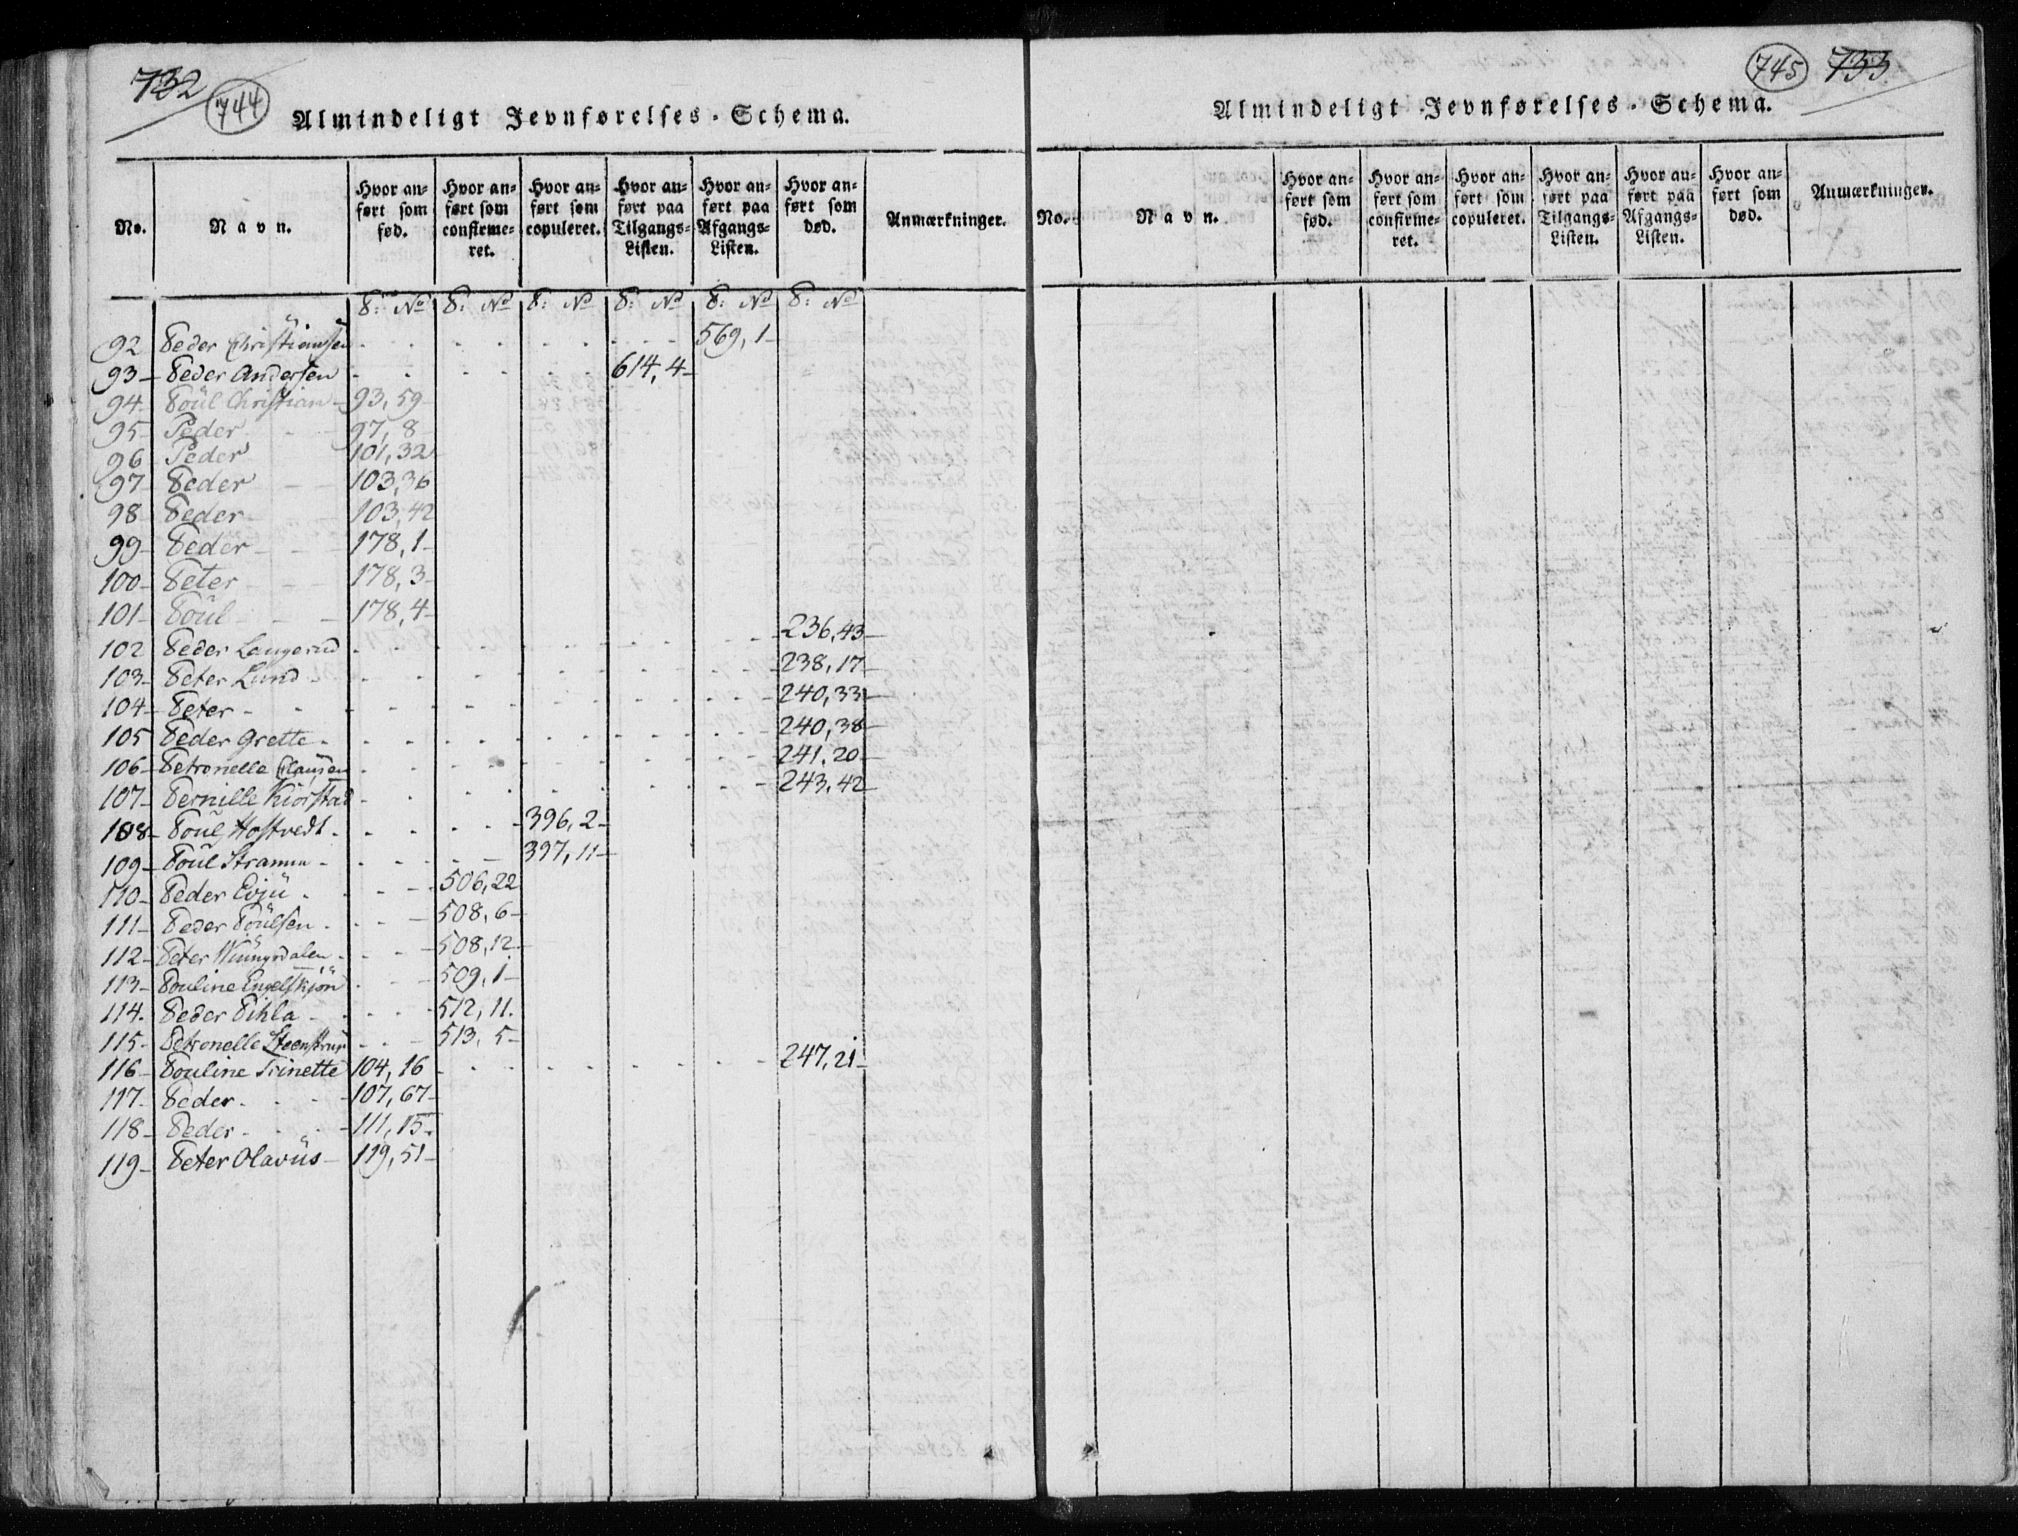 732
744
Almindeligt Jevnførelses-Schema.
No. | Navn. | Hvor anført som fød. | Hvor anført som confirmeret. | Hvor anført som copuleret. | Hvor anført paa Tilgangs-Listen. | Hvor anført paa Afgangs-Listen. | Hvor anført som død. | Anmærkninger.
S: No | S: No | S: No | S: No | S: No | S: No
92 Peder Christiansen 569, 1
93 Peder Andersen 614, 4
94 Poül Christian 93, 59
95 Peder 97, 8
96 Peder 101, 32
97 Peder 103, 36
98 Peder 103, 42
99 Peder 178, 1
100 Peter 178, 3
101 Poül 178, 4
102 Peder Langerud 236, 43
103 Peter Lund 238, 17
104 Peter 240, 33
105 Peder Grette 240, 38
106 Petronelle Clausen 241, 20
107 Pernille Kiorstad 243, 42
108 Poül Hostvedt 396, 2
109 Poül Stramm 397, 11
110 Peder Evjü 506, 22
111 Peder Poülsen 508, 6
112 Peter 508, 12
113 Pouline Engelskjön 509, 1
114. Peder Pihla 512, 11.
115 Petronelle Steenstrup 513, 5
116 Pouline Trinette 104, 16 247, 21
117 Peder 107, 67
118 Peder 111, 15
119 Peter Olavüs 119, 51
745
733
Almindeligt Jevnførelses-Schema.
No. | Navn. | Hvor anført som fød. | Hvor anført som confirmeret. | Hvor anført som copuleret. | Hvor anført paa Tilgangs-Listen. | Hvor anført paa Afgangs-Listen. | Hvor anført som død. | Anmærkninger.